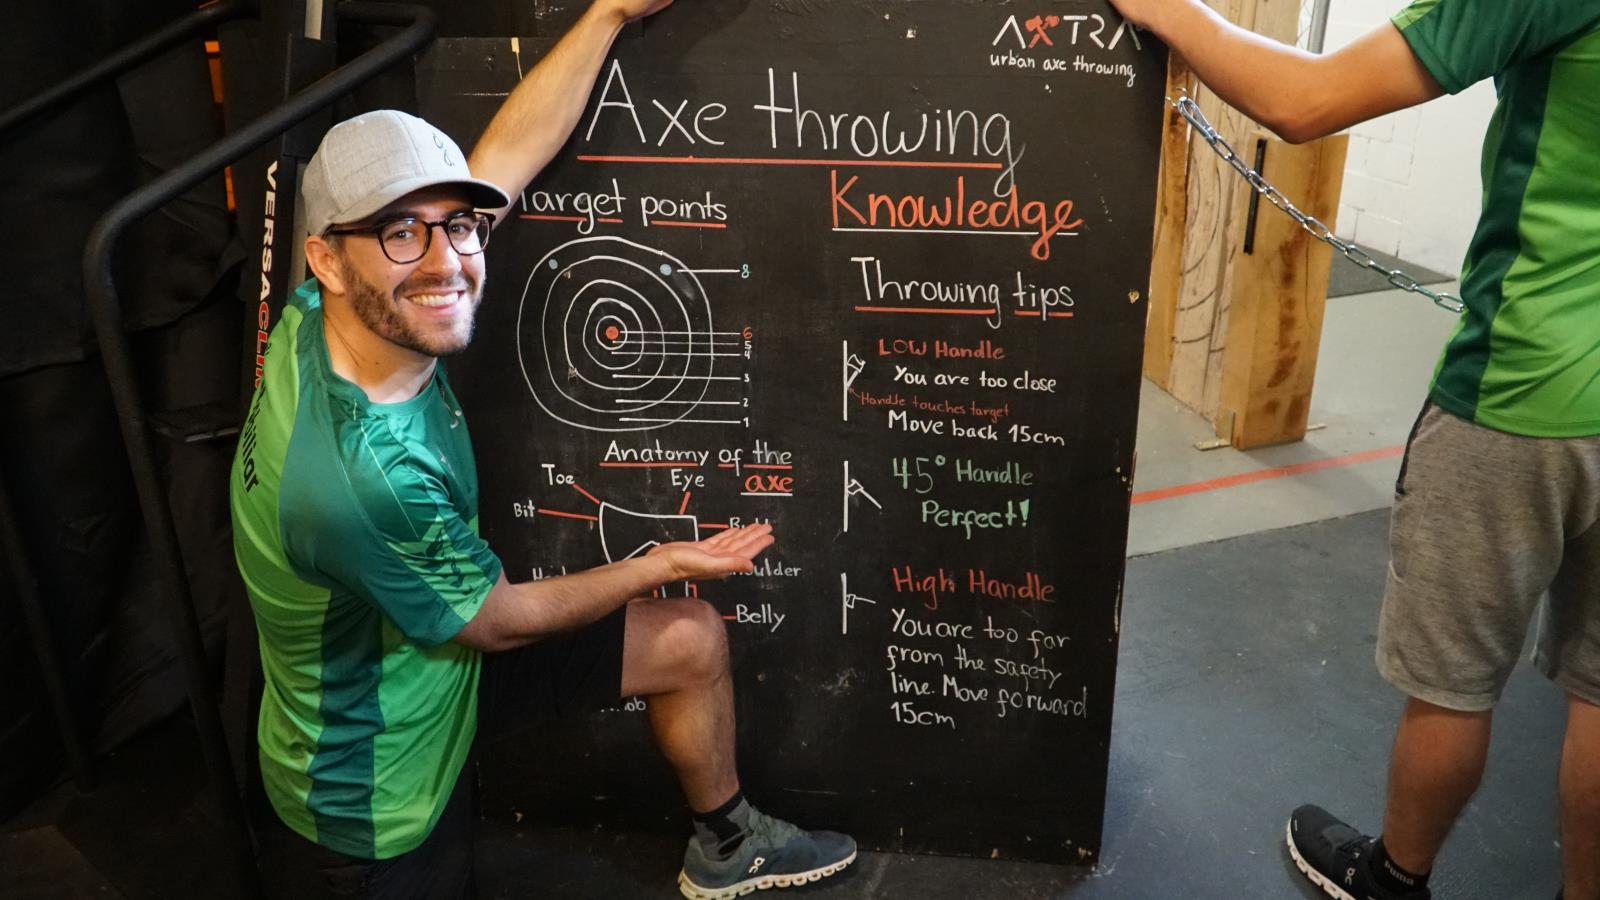 AXTRA
urban axe throwing
Axe throwing
Knowledge
Target points
8
6
5
4
3
2
1
Anatomy of the
axe
Toe
Eye
Bit
Belly
Throwing tips
LOW Handle
You are too close
Handle touches target
Move back 15cm
45° Handle
Perfect!
High Handle
You are too far
from the safety
line. Move forward
15cm